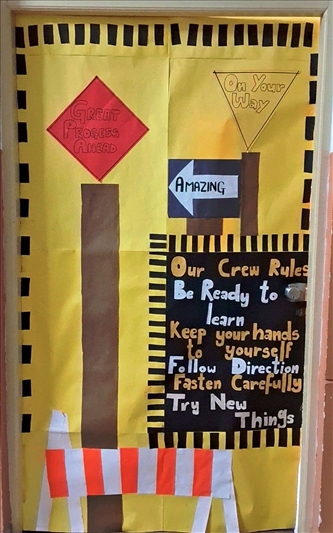 Great
Progress
Ahead
On Your
Way
Amazing
Our Crew Rules
Be Ready to
learn
Keep your hands
to yourself
Follow Direction
Fasten Carefully
Try New
Things